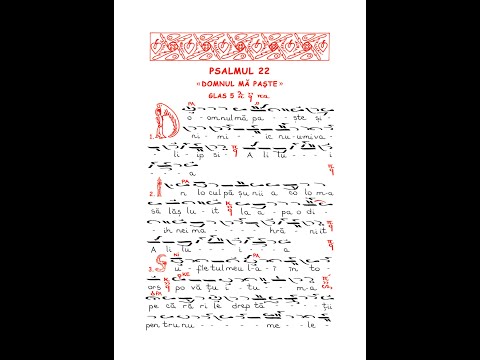 PSALMUL 22
«DOMNUL MĂ PAȘTE»
GLAS 5
PA
1. D o - omnul mă pa - - ște și -
ni - mi - - ic nu-mi va -
li - ip si - A li lu - - - i
- - - a
PA
2. n lo cul pă șu nii a co lo m-a
să lăș lu - it la a - pa o di -
ih nei ma - - - hră ni it
A li lu - - i - - a
NI PA
3. S u - fle tul meu l-a ? în to -
ors po vă țu i - tu - - m-a -
pe că ră ri le drep tă - - ții
pen tru nu - - - - me - le -